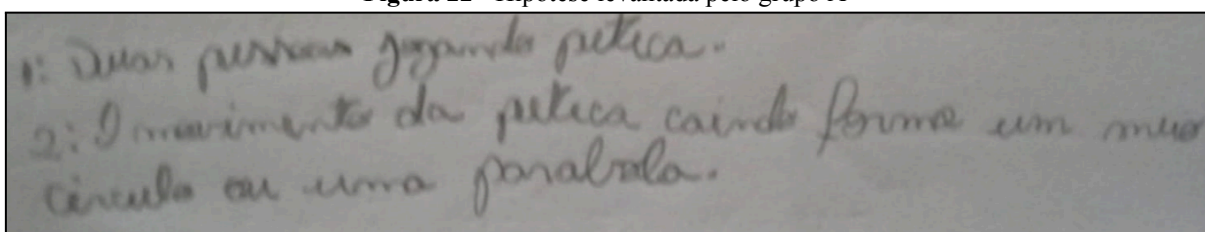 Figura 22 - Hipótese levantada pelo grupo A
1: Duas pessoas jogando peteca.
2: O movimento da peteca caindo forma um meio
circulo ou uma parabala.